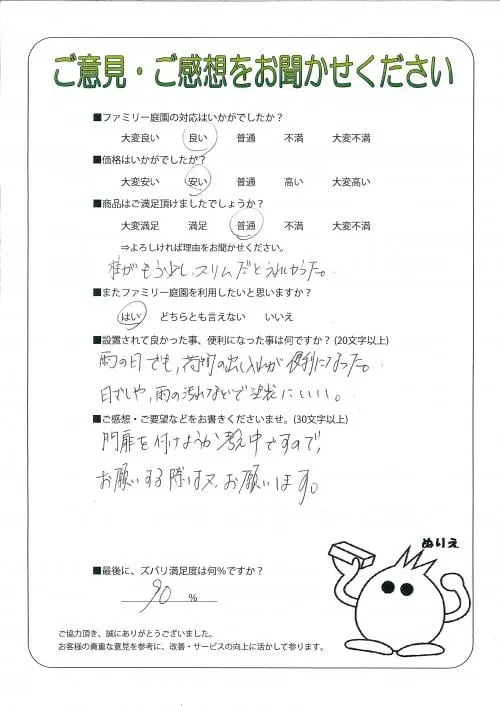 ご意見・ご感想をお聞かせください
■ファミリー庭園の対応はいかがでしたか？
大変良い 良い 普通 不満 大変不満
■価格はいかがでしたか？
大変安い 安い 普通 高い 大変高い
■商品はご満足頂けましたでしょうか？
大変満足 満足 普通 不満 大変不満
⇒よろしければ理由をお聞かせください。
柱がもう少し、スリムだとうれしかった。
■またファミリー庭園を利用したいと思いますか？
はい どちらとも言えない いいえ
■設置されて良かった事、便利になった事は何ですか？(20文字以上)
雨の日でも、荷物の出し入れが便利になった。
日ざしや、雨の汚れなどで に いい。
■ご感想・ご要望などをお書きくださいませ。(30文字以上)
門扉を付けようか考え中ですので、
お願いする際は又、お願いします。
ぬりえ
■最後に、ズバリ満足度は何％ですか？
90 %
ご協力頂き、誠にありがとうございました。
お客様の貴重な意見を参考に、改善・サービスの向上に活かして参ります。